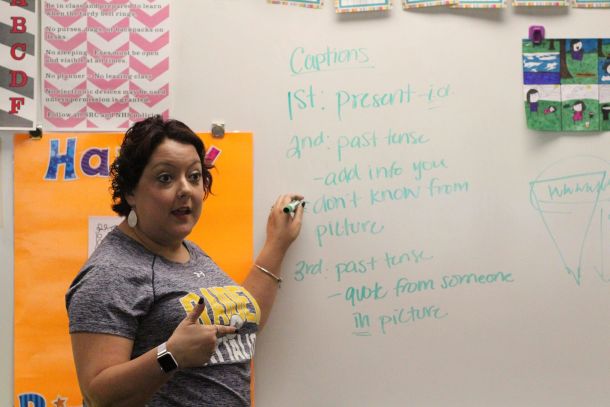 be in class and prepared to learn
when the tardy bell rings
No purses, bags, or backpacks on
desks.
No sleeping - Eyes must be open
and visible at all times.
No planner - No leaving class
No electronic devices may be used
unless permission is granted.
Follow all SRC and NHS policies
B
C
D
F
Ha
Captions
1st: present-id.
2nd: past tense
-add info you
don't know from
picture
3rd: past tense
-quote from someone
in picture
wwww